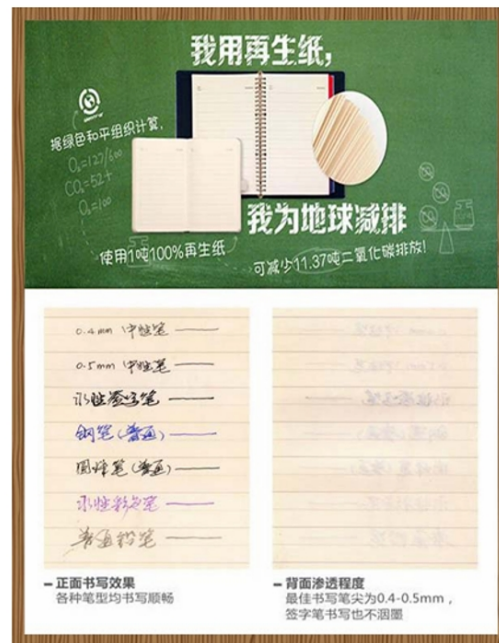 我用再生纸，
据绿色和平组织计算，
O₂=127/600
CO₂=52+
O₂=100
我为地球减排
使用1吨100%再生纸
可减少11.37吨二氧化碳排放！
0.4mm 中性笔
0.5mm 中性笔
水性签字笔
钢笔（普通）
圆珠笔（普通）
水性彩色笔
普通粉笔
正面书写效果
各种笔型均书写顺畅
背面渗透程度
最佳书写笔尖为0.4-0.5mm，
签字笔书写也不洇墨